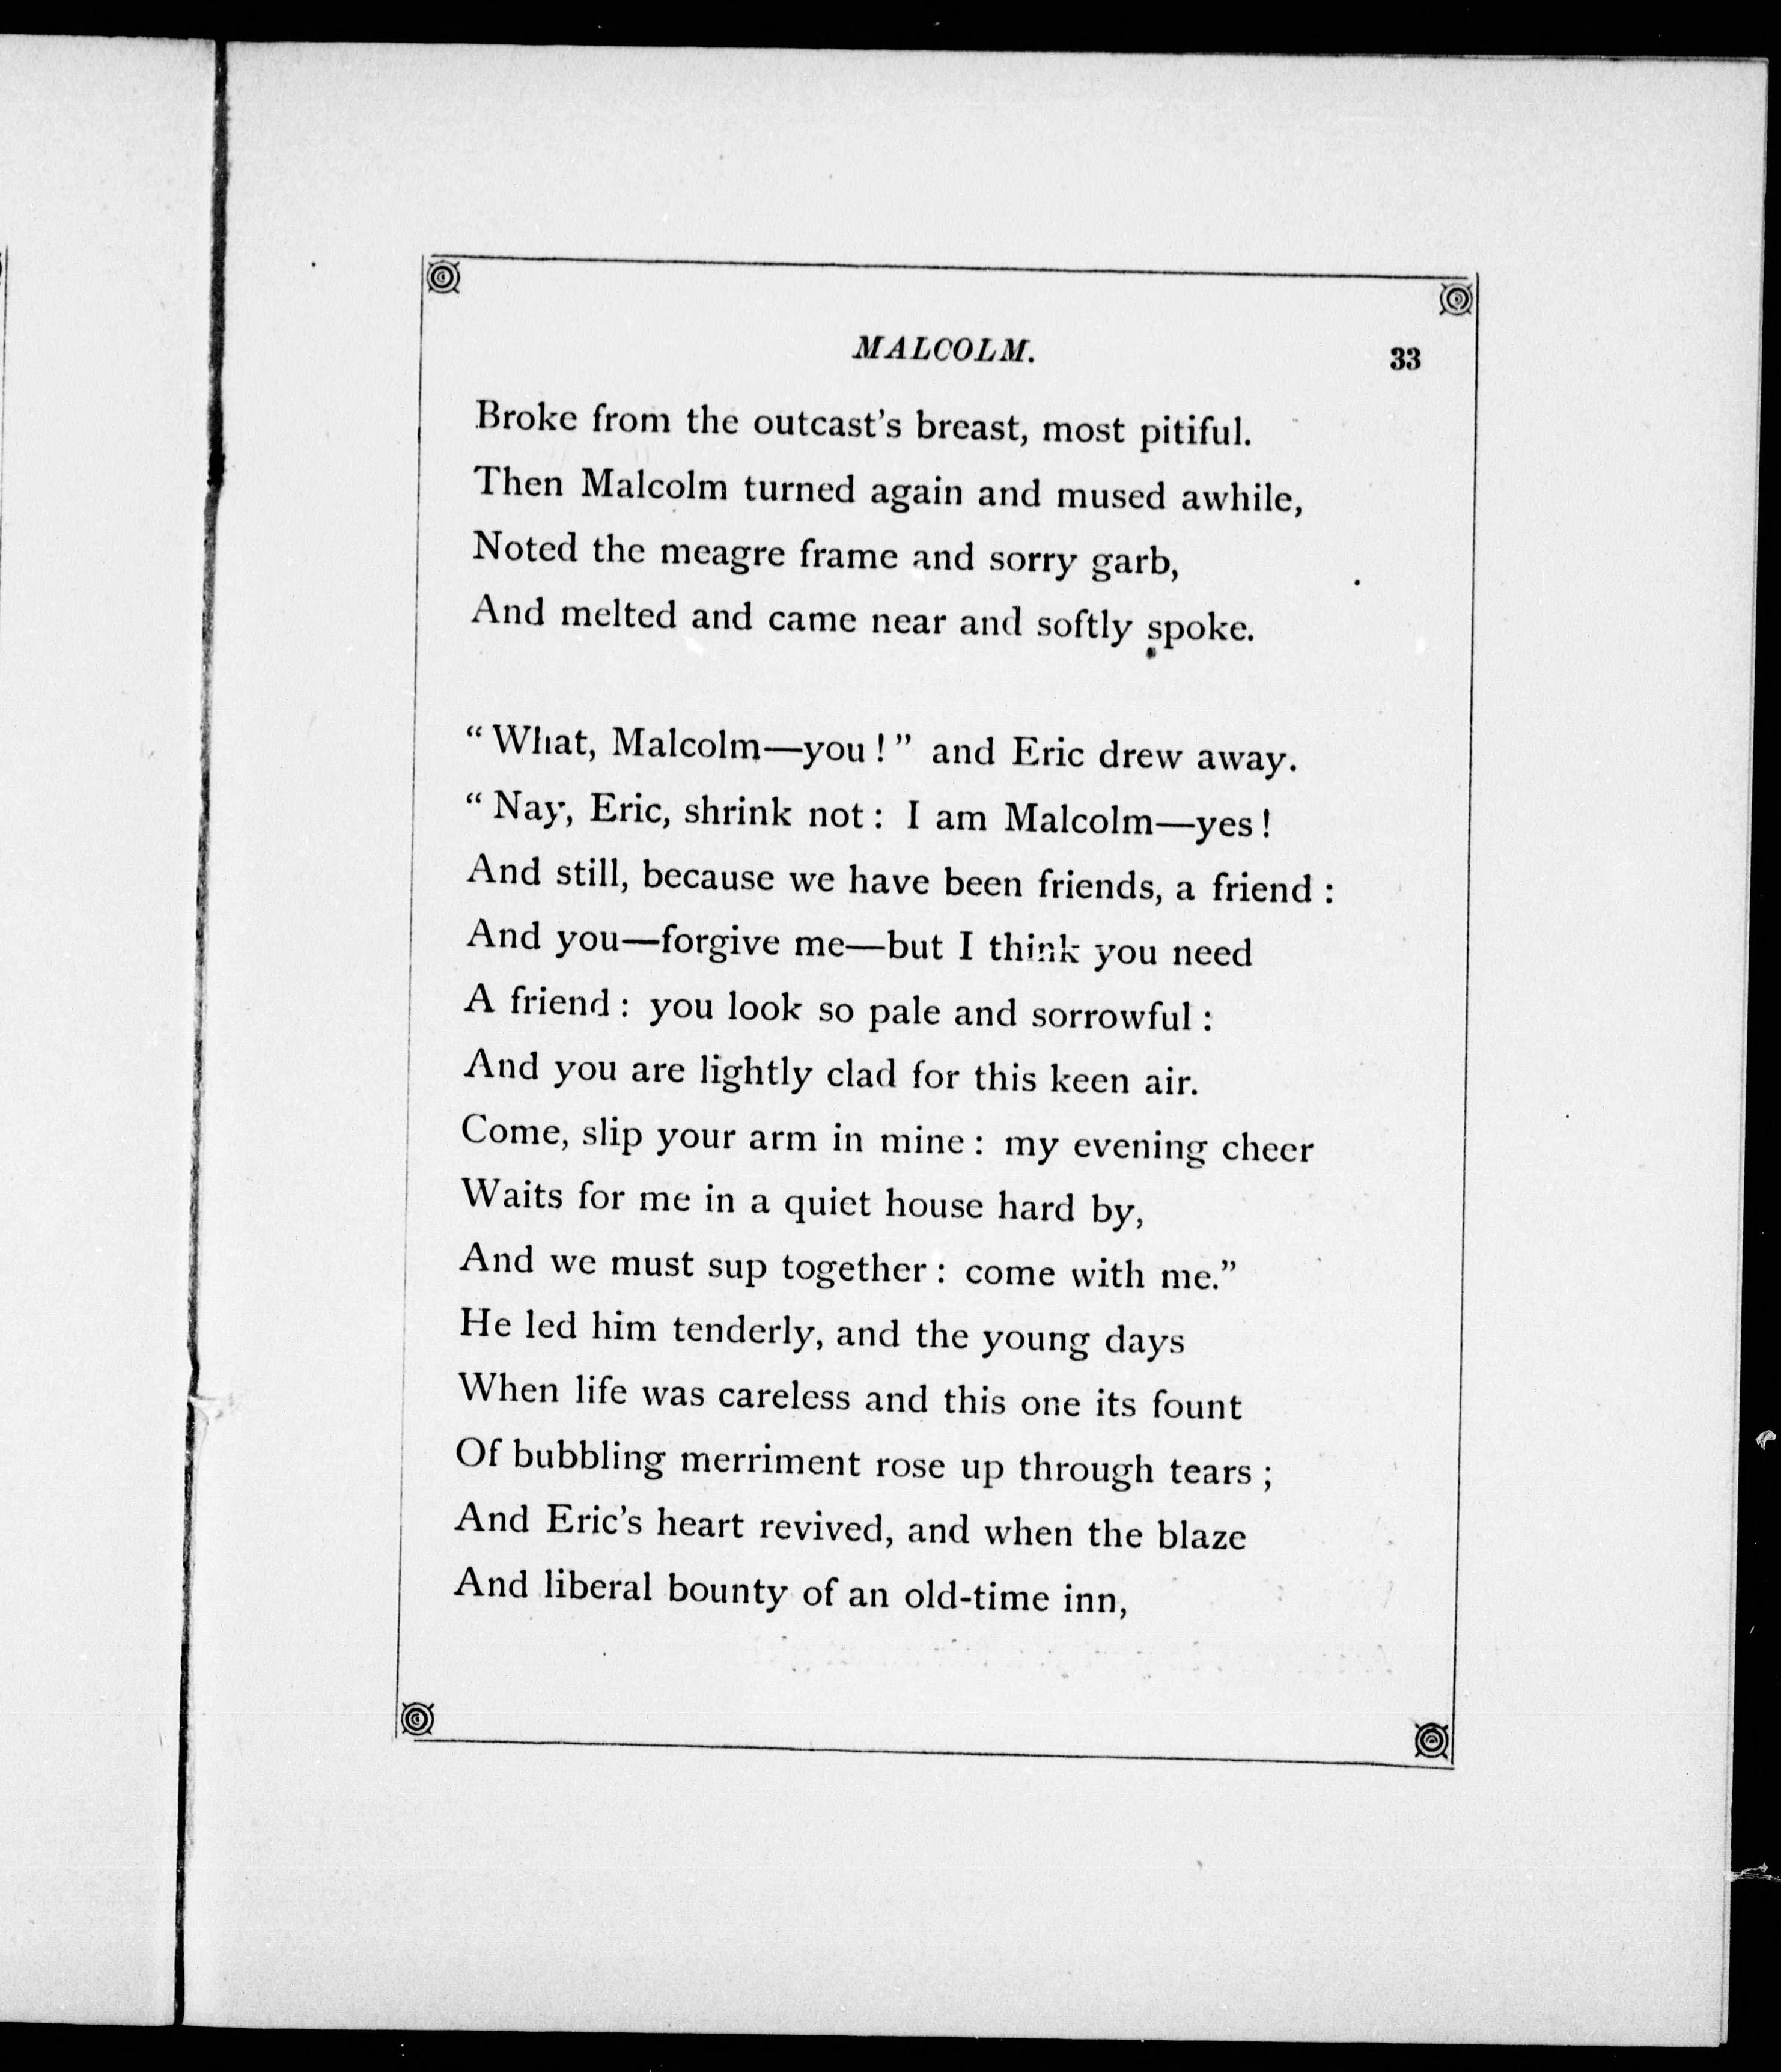 MALCOLM. 33
Broke from the outcast's breast, most pitiful.
Then Malcolm turned again and mused awhile,
Noted the meagre frame and sorry garb,
And melted and came near and softly spoke.

“What, Malcolm—you!” and Eric drew away.
“Nay, Eric, shrink not: I am Malcolm—yes!
And still, because we have been friends, a friend:
And you—forgive me—but I think you need
A friend: you look so pale and sorrowful:
And you are lightly clad for this keen air.
Come, slip your arm in mine: my evening cheer
Waits for me in a quiet house hard by,
And we must sup together: come with me.”
He led him tenderly, and the young days
When life was careless and this one its fount
Of bubbling merriment rose up through tears;
And Eric's heart revived, and when the blaze
And liberal bounty of an old-time inn,